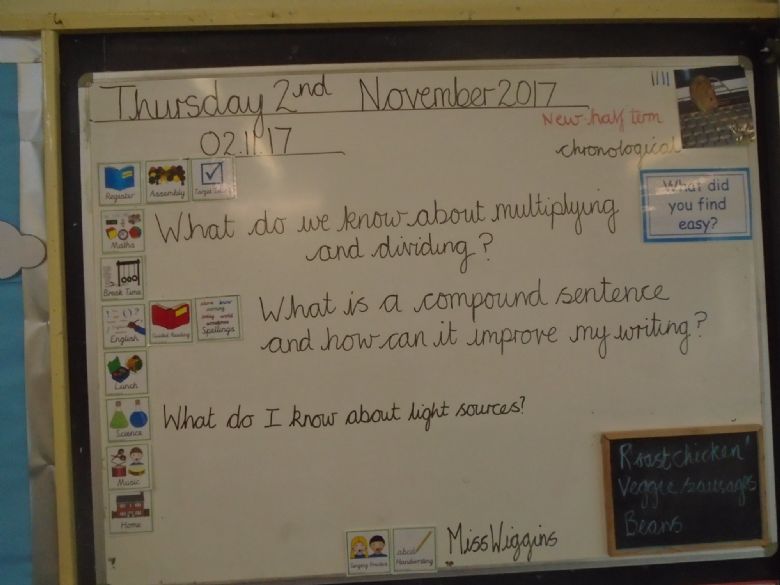 Thursday 2nd November 2017
New half term
02.11.17
chronological
Register Assembly
What did
you find
easy?
Maths
What do we know about multiplying
and dividing?
Break Time
English Guided Reading Spellings
What is a compound sentence
and how can it improve my writing?
Lunch
Science
What do I know about light sources?
Music
Home
Roast chicken
Veggie sausages
Beans
Singing Practice
abcd
Handwriting
Miss Wiggins